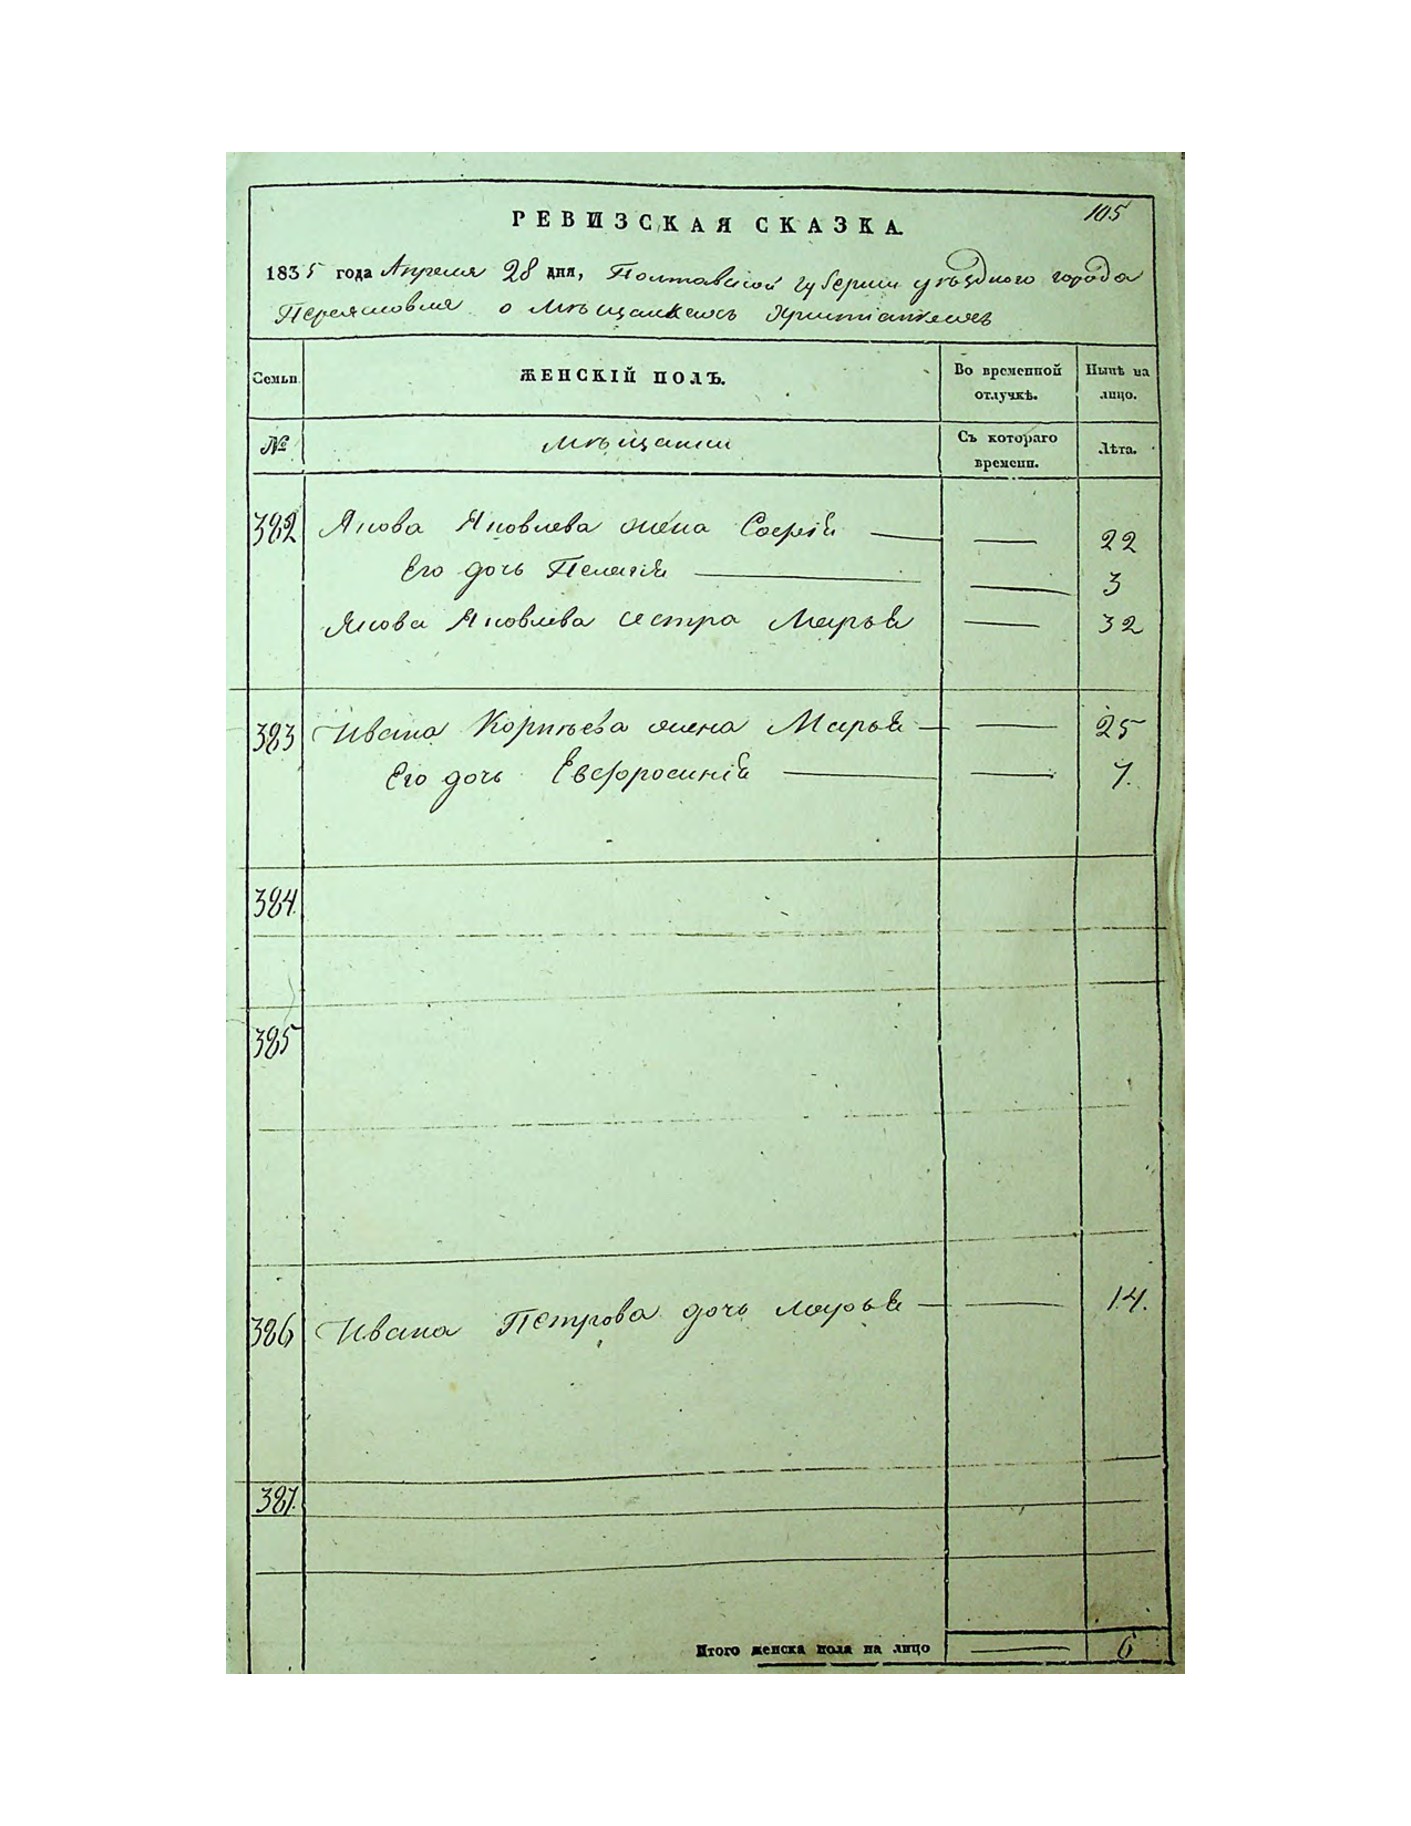 105
РЕВИЗСКАЯ СКАЗКА.
1835 года Апреля 28 дня, Полтавской губернии уѣзднаго города
Переяслова о мѣщанкахъ христіанкахъ
Семьи
ЖЕНСКІЙ ПОЛЪ.
Во временной отлучкѣ.
Нынѣ на лицо.
№
мѣщанки
Съ котораго времени.
Лѣта.
382 Якова Яковлева жена Софія — — 22
Его дочь Пелагія — — 3
Якова Яковлева сестра Марья — 32
383 Ивана Корнѣева жена Марья — — 25
Его дочь Евфросинія — — 7.
384.
385
386 Ивана Петрова дочь Марья — — 14.
387.
Итого женска пола на лицо — 6